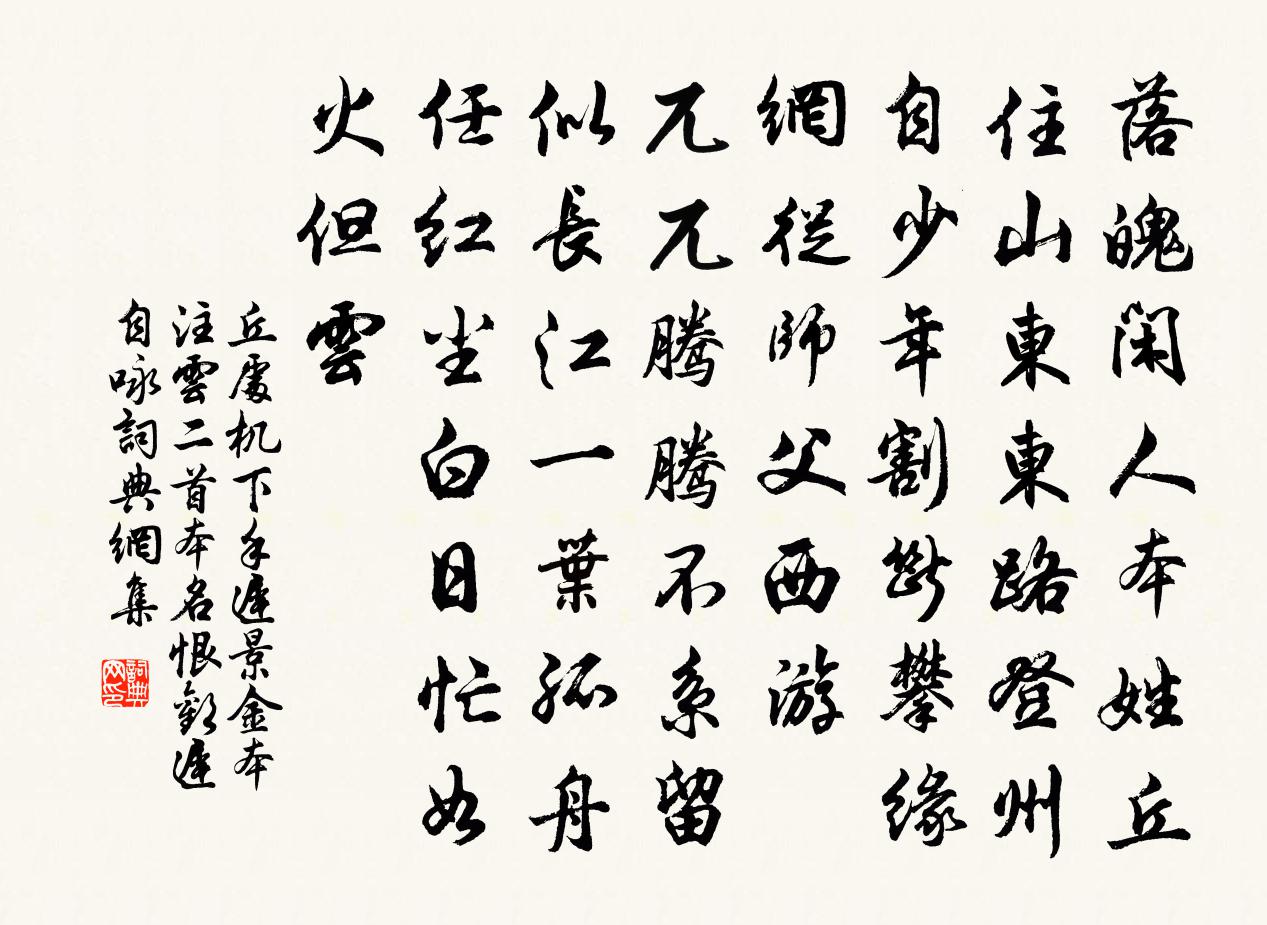 落魄閑人本姓丘
住山東東路登州
自少年割斷攀緣
網從師父西游
兀兀騰騰不系留
似長江一葉孤舟
任紅尘白日忙如
火但雲
丘處机下手遲景金本
注雲二首本名恨歡遲
自咏詞典網集